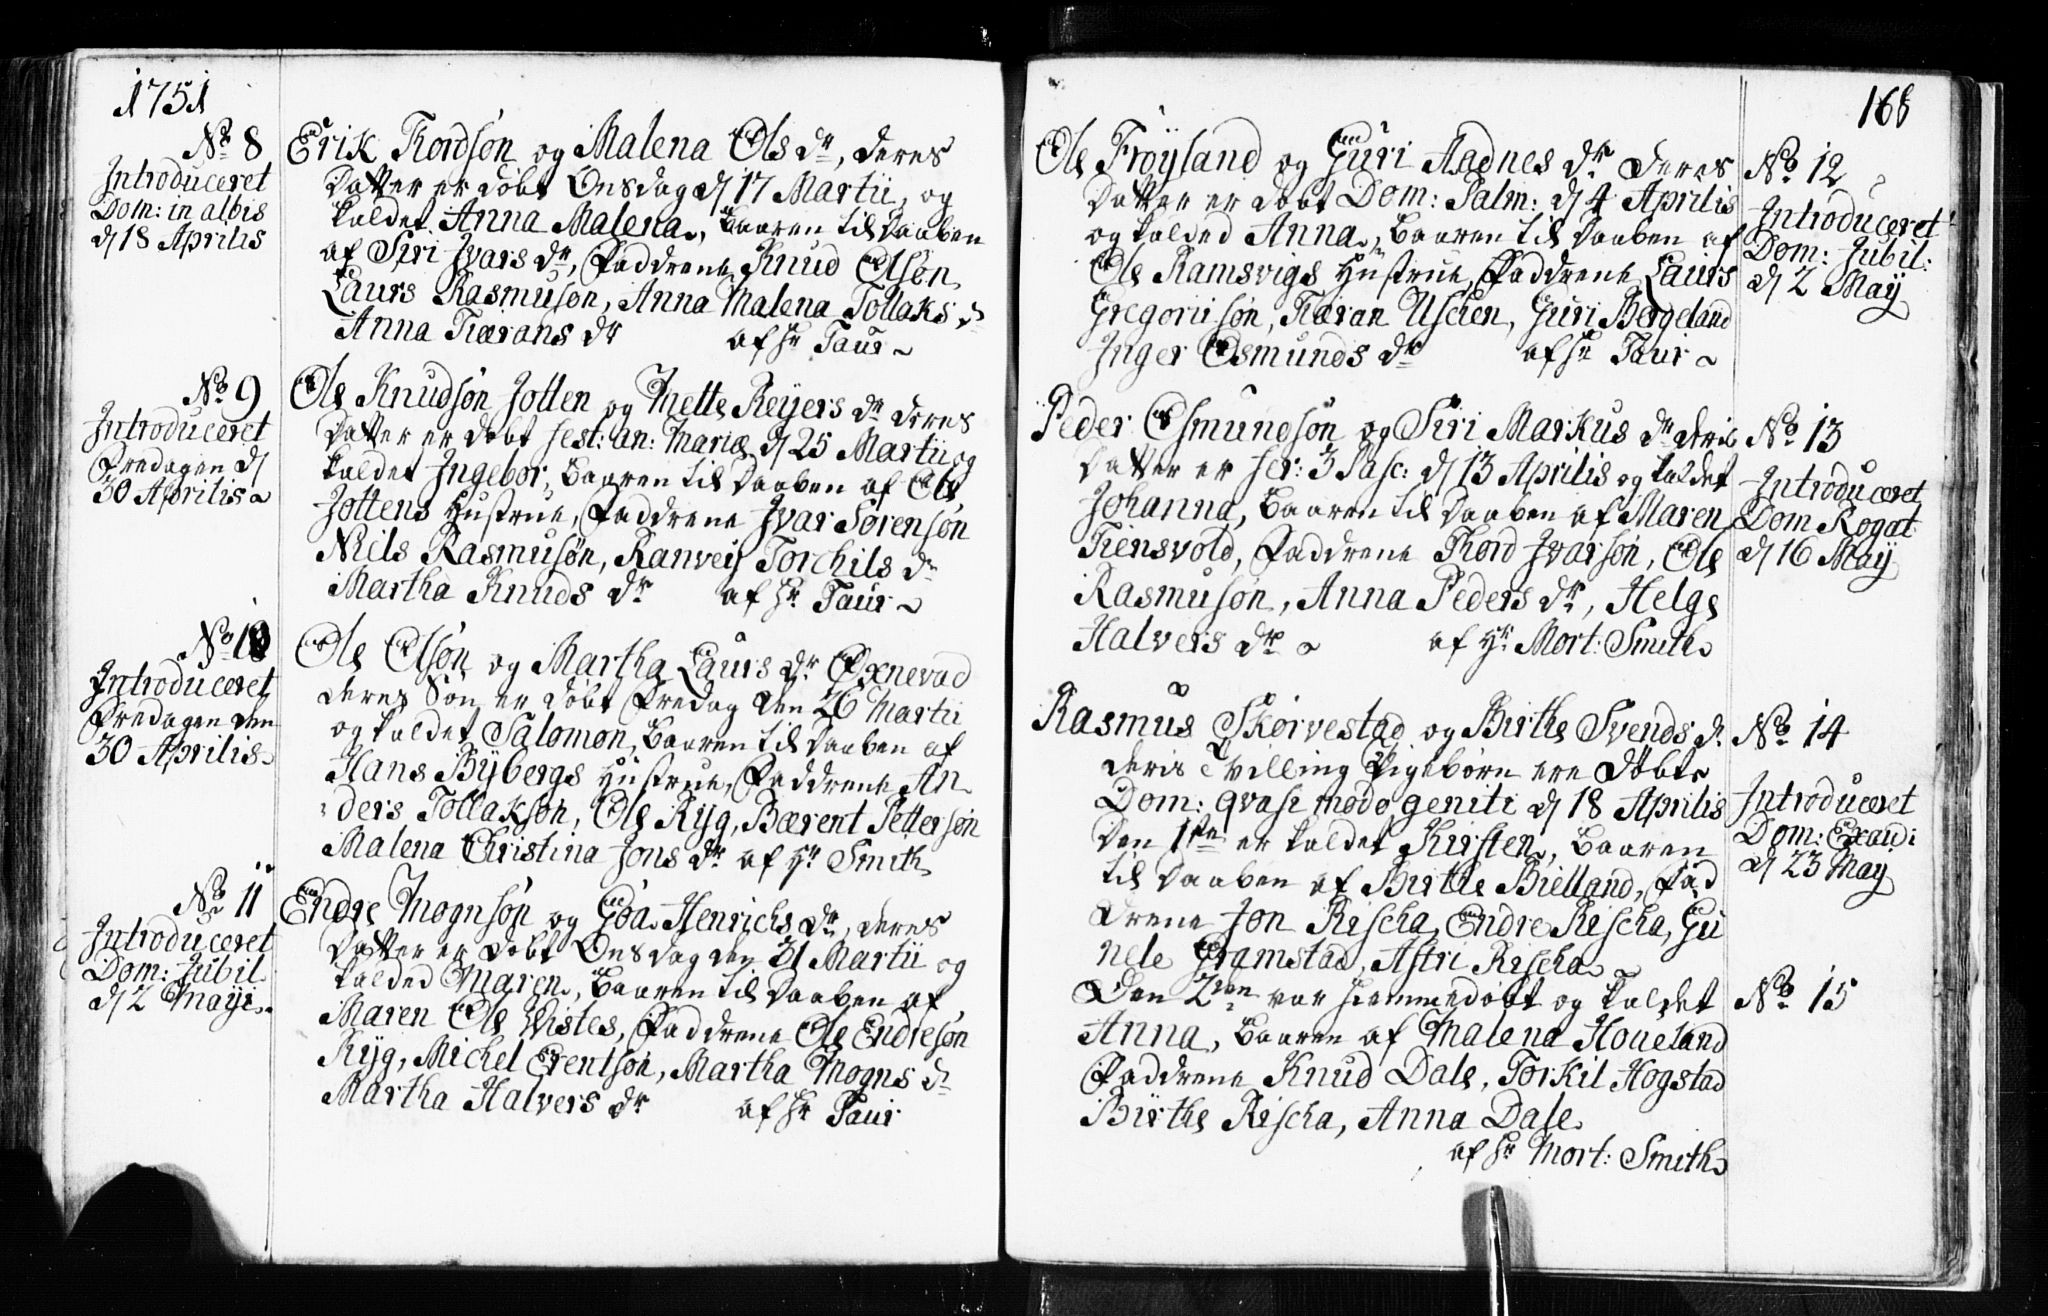 1751
No 8
Introduceret
Dom: in albis
d 18 Aprilis
Erik Tordsøn og Malena Ols dr, deres
Datter er døbt Onsdag d 17 Martii, og
kaldet Anna Malena, baaren til Daaben
af Siri Ivars dr, Faddrene Knud Olsøn
Laurs Rasmusøn, Anna Malena Tollaks d
Anna Tiærans dr af Hr Taur
No 9
Introduceret
Fredagen d
30 Aprilis
Ole Knudsøn Jotten og Mette Reyers dr deres
Datter er døbt fest: an: Mariæ d 25 Martii og
kaldet Ingebor, baaren til Daaben af Ole
Jottens Hustrue, Faddrene Ivar Sørensøn
Niels Rasmusøn, Ranveig Torchils dr
Martha Knuds dr af Hr Taur
No 10
Introduceret
Fredagen den
30 Aprilis
Ole Olsøn og Martha Laurs dr Oxnevad
deres Søn er døbt Fredag den 26 Martii
og kaldet Salomon, baaren til Daaben af
Hans Bybergs Hustrue, Faddrene An
ders Tollaksøn, Ole Ryg, Bærent Pettersøn
Malena Christina Jons dr af Hr Smith
No 11
Introduceret
Dom: Jubil
d 2 Maye
Endre Mognsøn og Goa Henrichs dr, deres
Datter er døbt Onsdag den 31 Martii og
kalded Maren, baaren til Daaben af
Maren Ole Vistes, Faddrene Ole Endresøn
Ryg, Michel Erentsøn, Martha Mogns d
Martha Halvers dr af Hr Taur
168
Ole Frøyland og Guri Aadnes dr deres
Datter er døbt Dom: Palm: d 4 Aprilis
og kalded Anna, baaren til Daaben af
Ole Ramsvigs Hustrue, Faddrene Laurs
Gregoriisøn, Tiæran Uscien, Guri Bergeland
Inger Osmunds dr af Hr Taur
No 12
Introduceret
Dom: Jubil:
d 2 May
Peder Osmundsøn og Siri Markus dr deris
Datter er fer: 3 Pasc: d 13 Aprilis og kaldet
Johanna, baaren til Daaben af Maren
Tiensvold, Faddrene Tord Ivarsøn, Ole
Rasmusøn, Anna Peders dr, Helge
Halvers dr af Hr Mort: Smith
No 13
Introduceret
Dom Rogat
d 16 May
Rasmus Skørvestad og Birthe Svends d.
deris Tvilling Pigebørn ere døbte
Dom: qvasi modo geniti d 18 Aprilis
den 1ste er kaldet Kirsten, baaren
til Daaben af Birthe Bielland, Fad
drene Jon Rischa, Endre Rischa, Gu
nele Gramstad, Astri Rischa
Den 2den var hiemmedøbt og kaldet
Anna, baaren af Malena Houeland
Faddrene Knud Dale, Torkil Hogstad
Birthe Rischa, Anna Dale
af Hr Mort: Smith
No 14
Introduceret
Dom: Exaudi
d 23 May
No 15